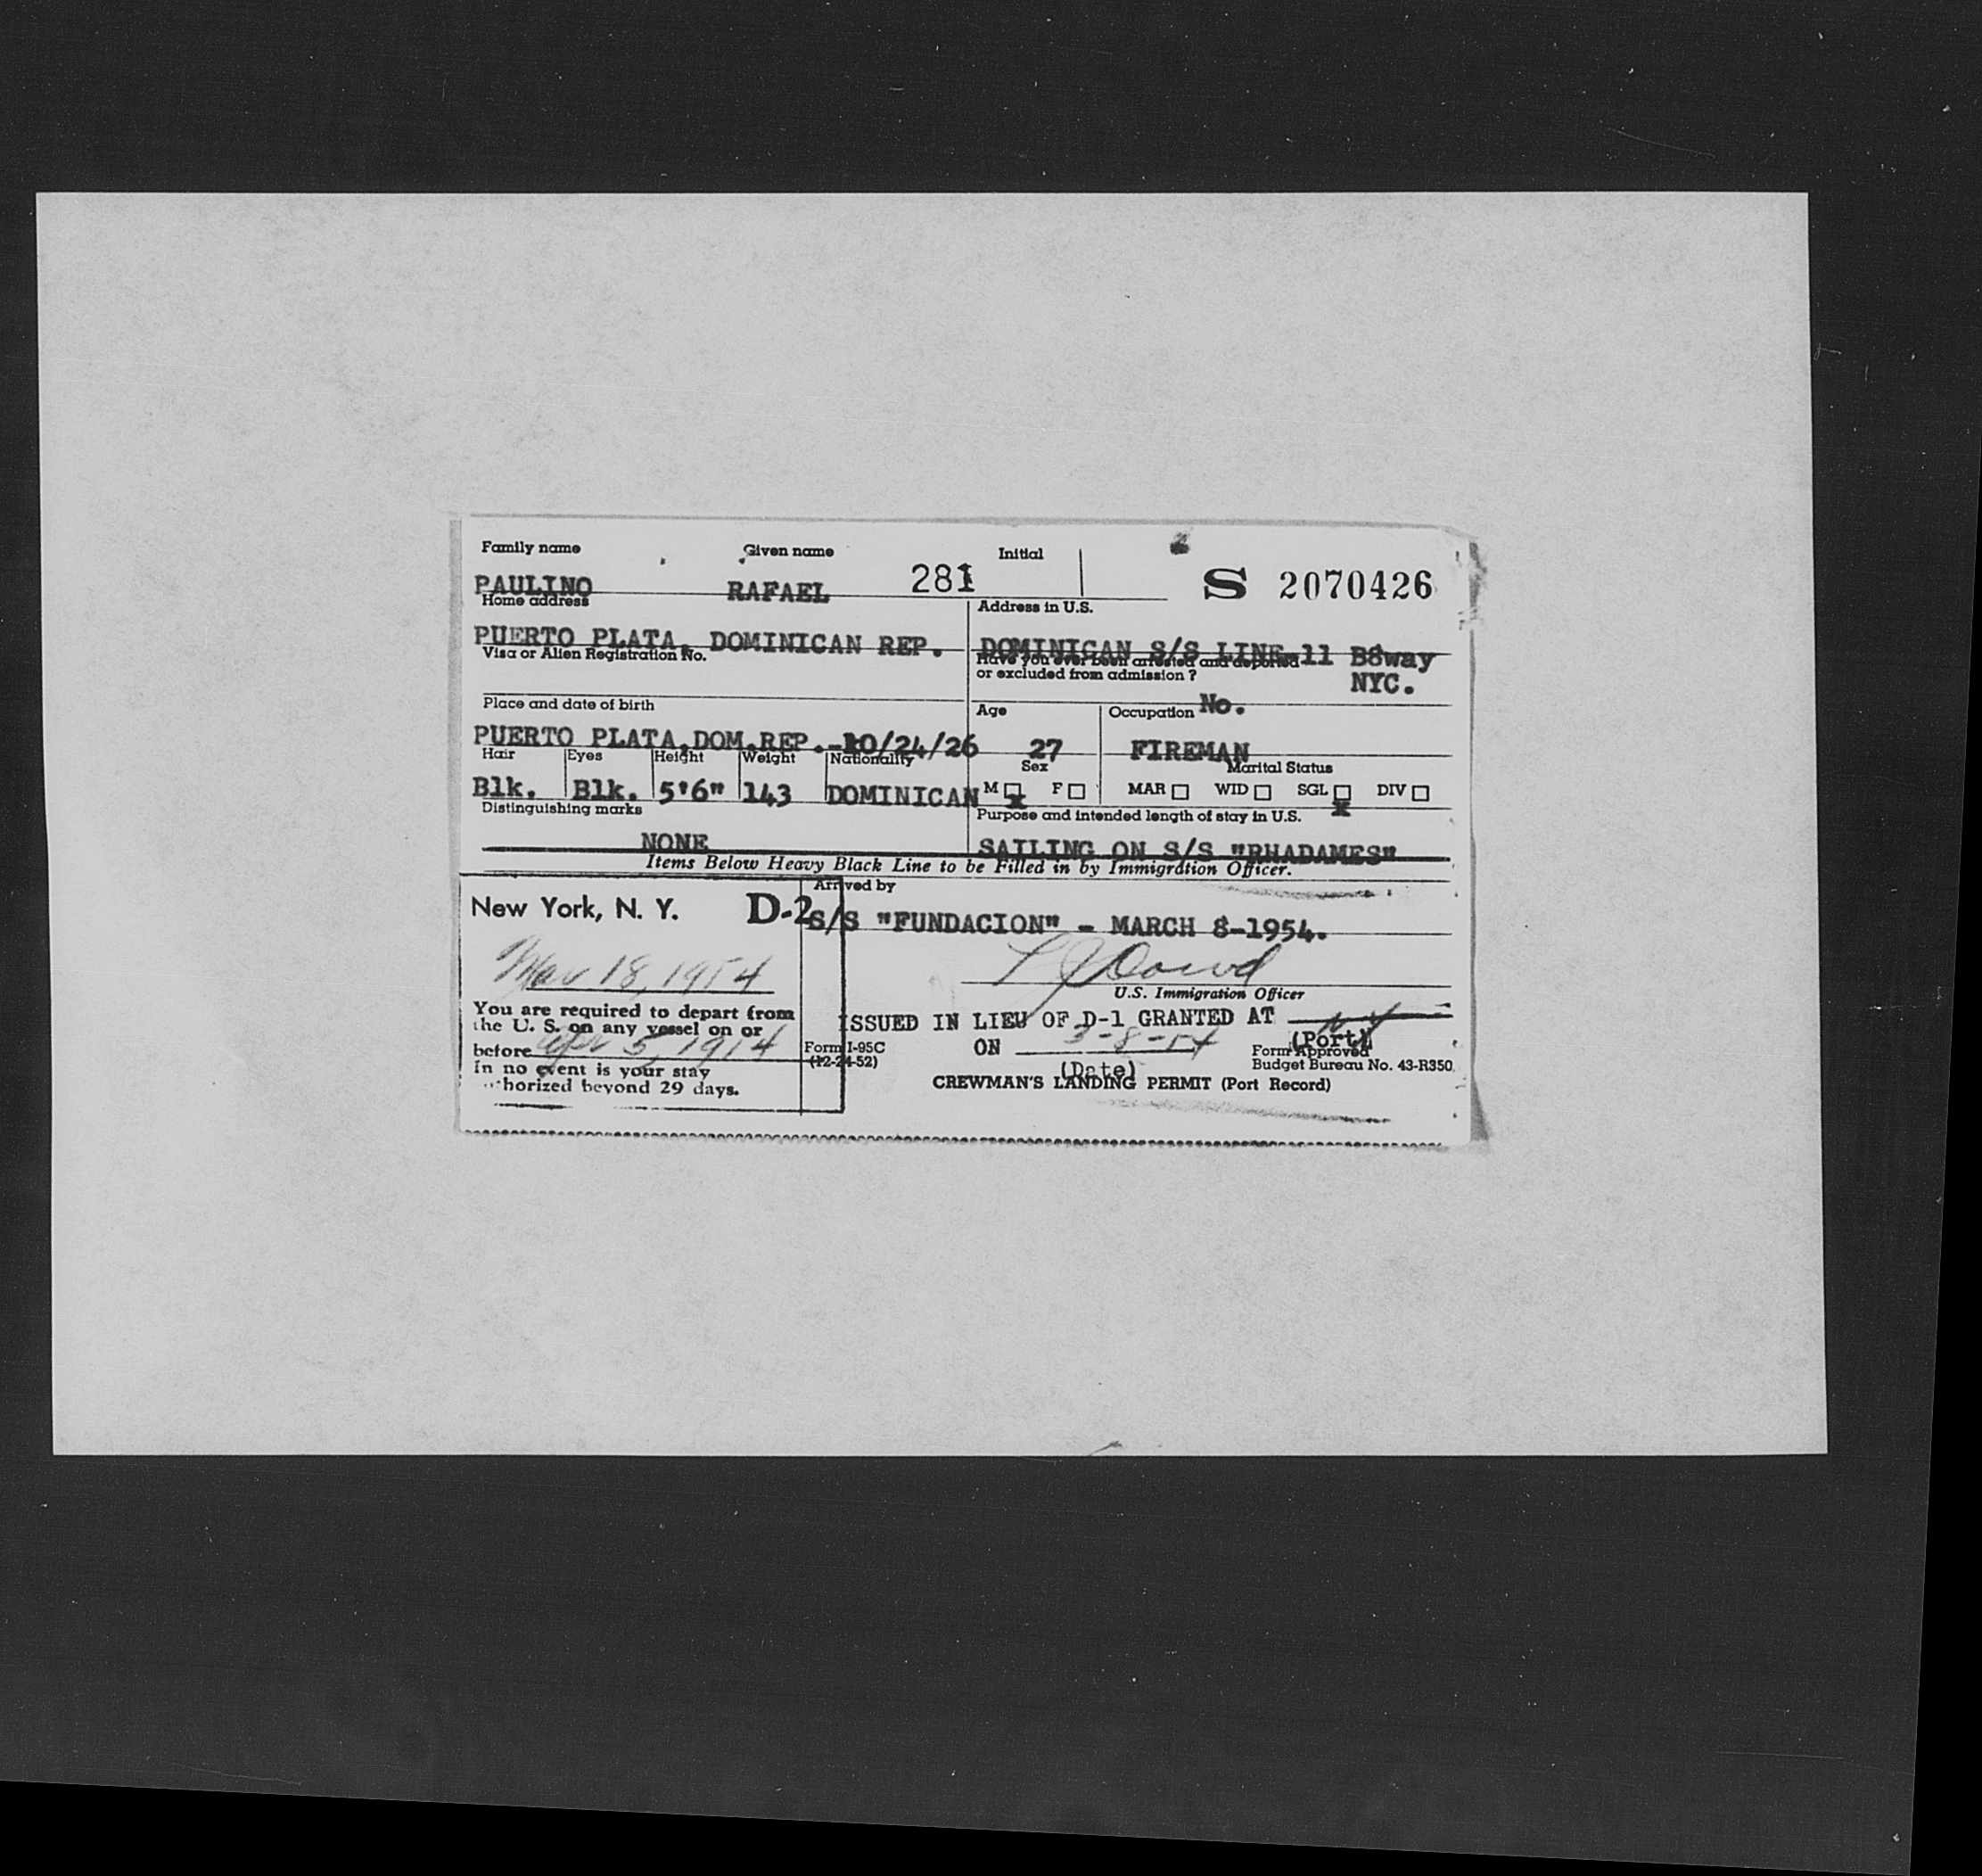 Family name Given name Initial
PAULINO RAFAEL 281 S 2070426
Home address Address in U.S.
PUERTO PLATA, DOMINICAN REP. DOMINICAN S/S LINE-11 B8way
NYC.
Visa or Alien Registration No. Have you ever been arrested and deported
or excluded from admission ?
No.
Place and date of birth Age Occupation
PUERTO PLATA,DOM.REP.-10/24/26 27 FIREMAN
Hair Eyes Height Weight Nationality Sex Marital Status
Blk. Blk. 5'6" 143 DOMINICAN M x F MAR WID SGL x DIV
Distinguishing marks Purpose and intended length of stay in U.S.
NONE SAILING ON S/S "RHADAMES"
Items Below Heavy Black Line to be Filled in by Immigration Officer.
Arrived by
New York, N. Y. D-2 S/S "FUNDACION" - MARCH 8-1954.
Mar 18, 1954
U.S. Immigration Officer
You are required to depart from
the U. S. on any vessel on or
before Apr 5, 1954
In no event is your stay
authorized beyond 29 days.
ISSUED IN LIEU OF D-1 GRANTED AT N Y
(Port)
ON 3-8-54
(Date)
Form I-95C
(12-24-52)
Form Approved
Budget Bureau No. 43-R350.
CREWMAN'S LANDING PERMIT (Port Record)